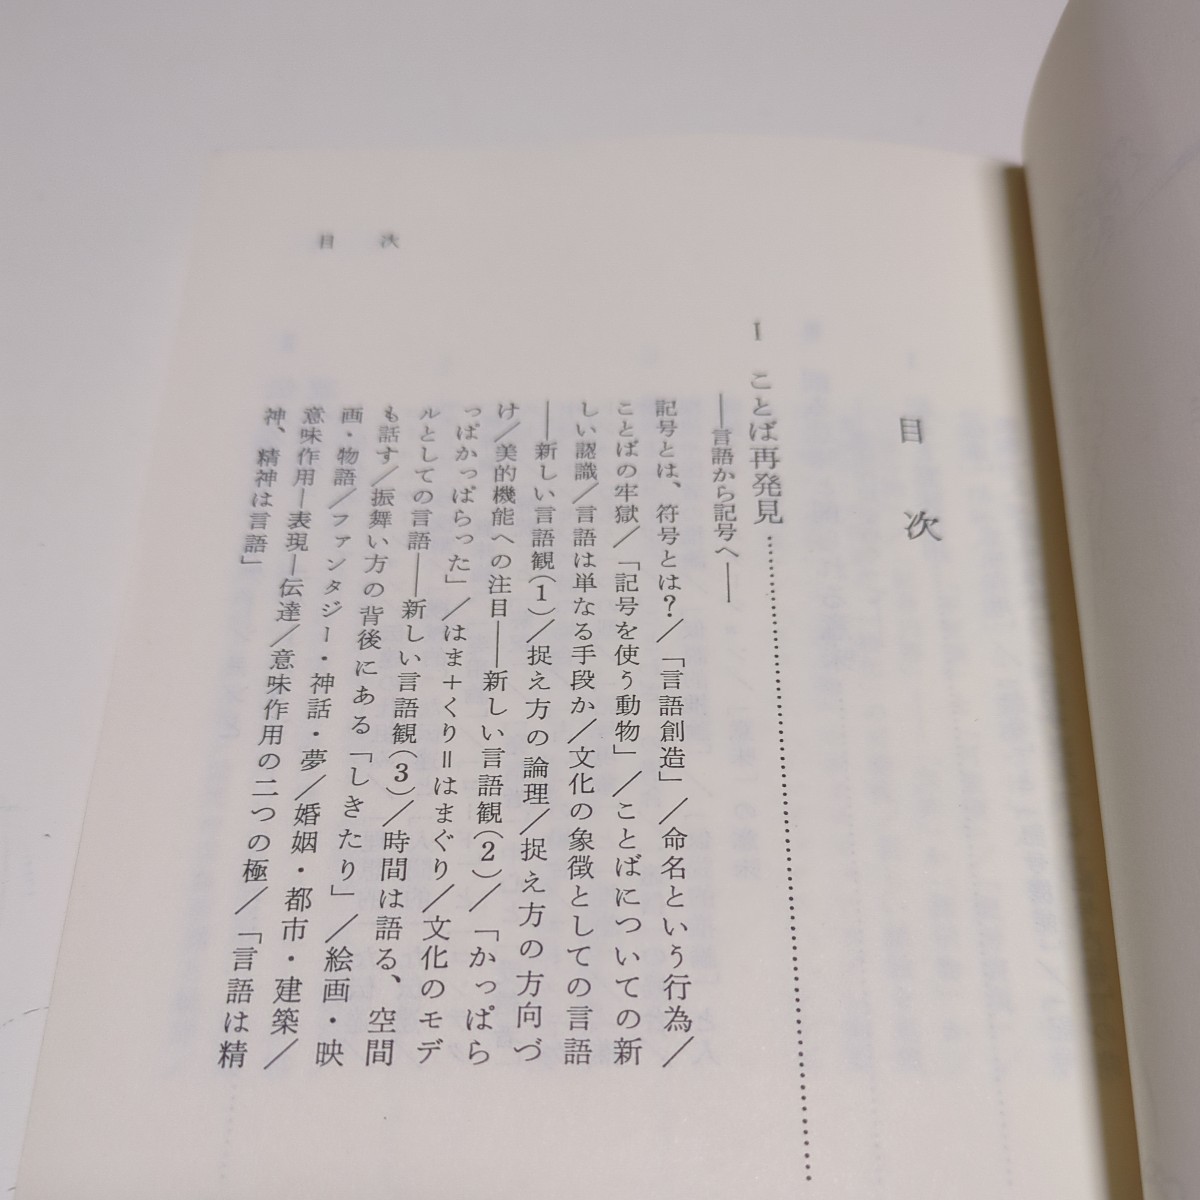 目次
目次
I ことば再発見
――言語から記号へ――
記号とは、符号とは?/「言語創造」/命名という行為/
ことばの牢獄/「記号を使う動物」/ことばについての新
しい認識/言語は単なる手段か/文化の象徴としての言語
――新しい言語観(1)/捉え方の論理/捉え方の方向づ
け/美的機能への注目――新しい言語観(2)/「かっぱら
っぱかっぱらった」/はま+くり=はまぐり/文化のモデ
ルとしての言語――新しい言語観(3)/時間は語る、空間
も話す/振舞い方の背後にある「しきたり」/絵画・映
画・物語/ファンタジー・神話・夢/婚姻・都市・建築/
意味作用―表現―伝達/意味作用の二つの極/「言語は精
神、精神は言語」